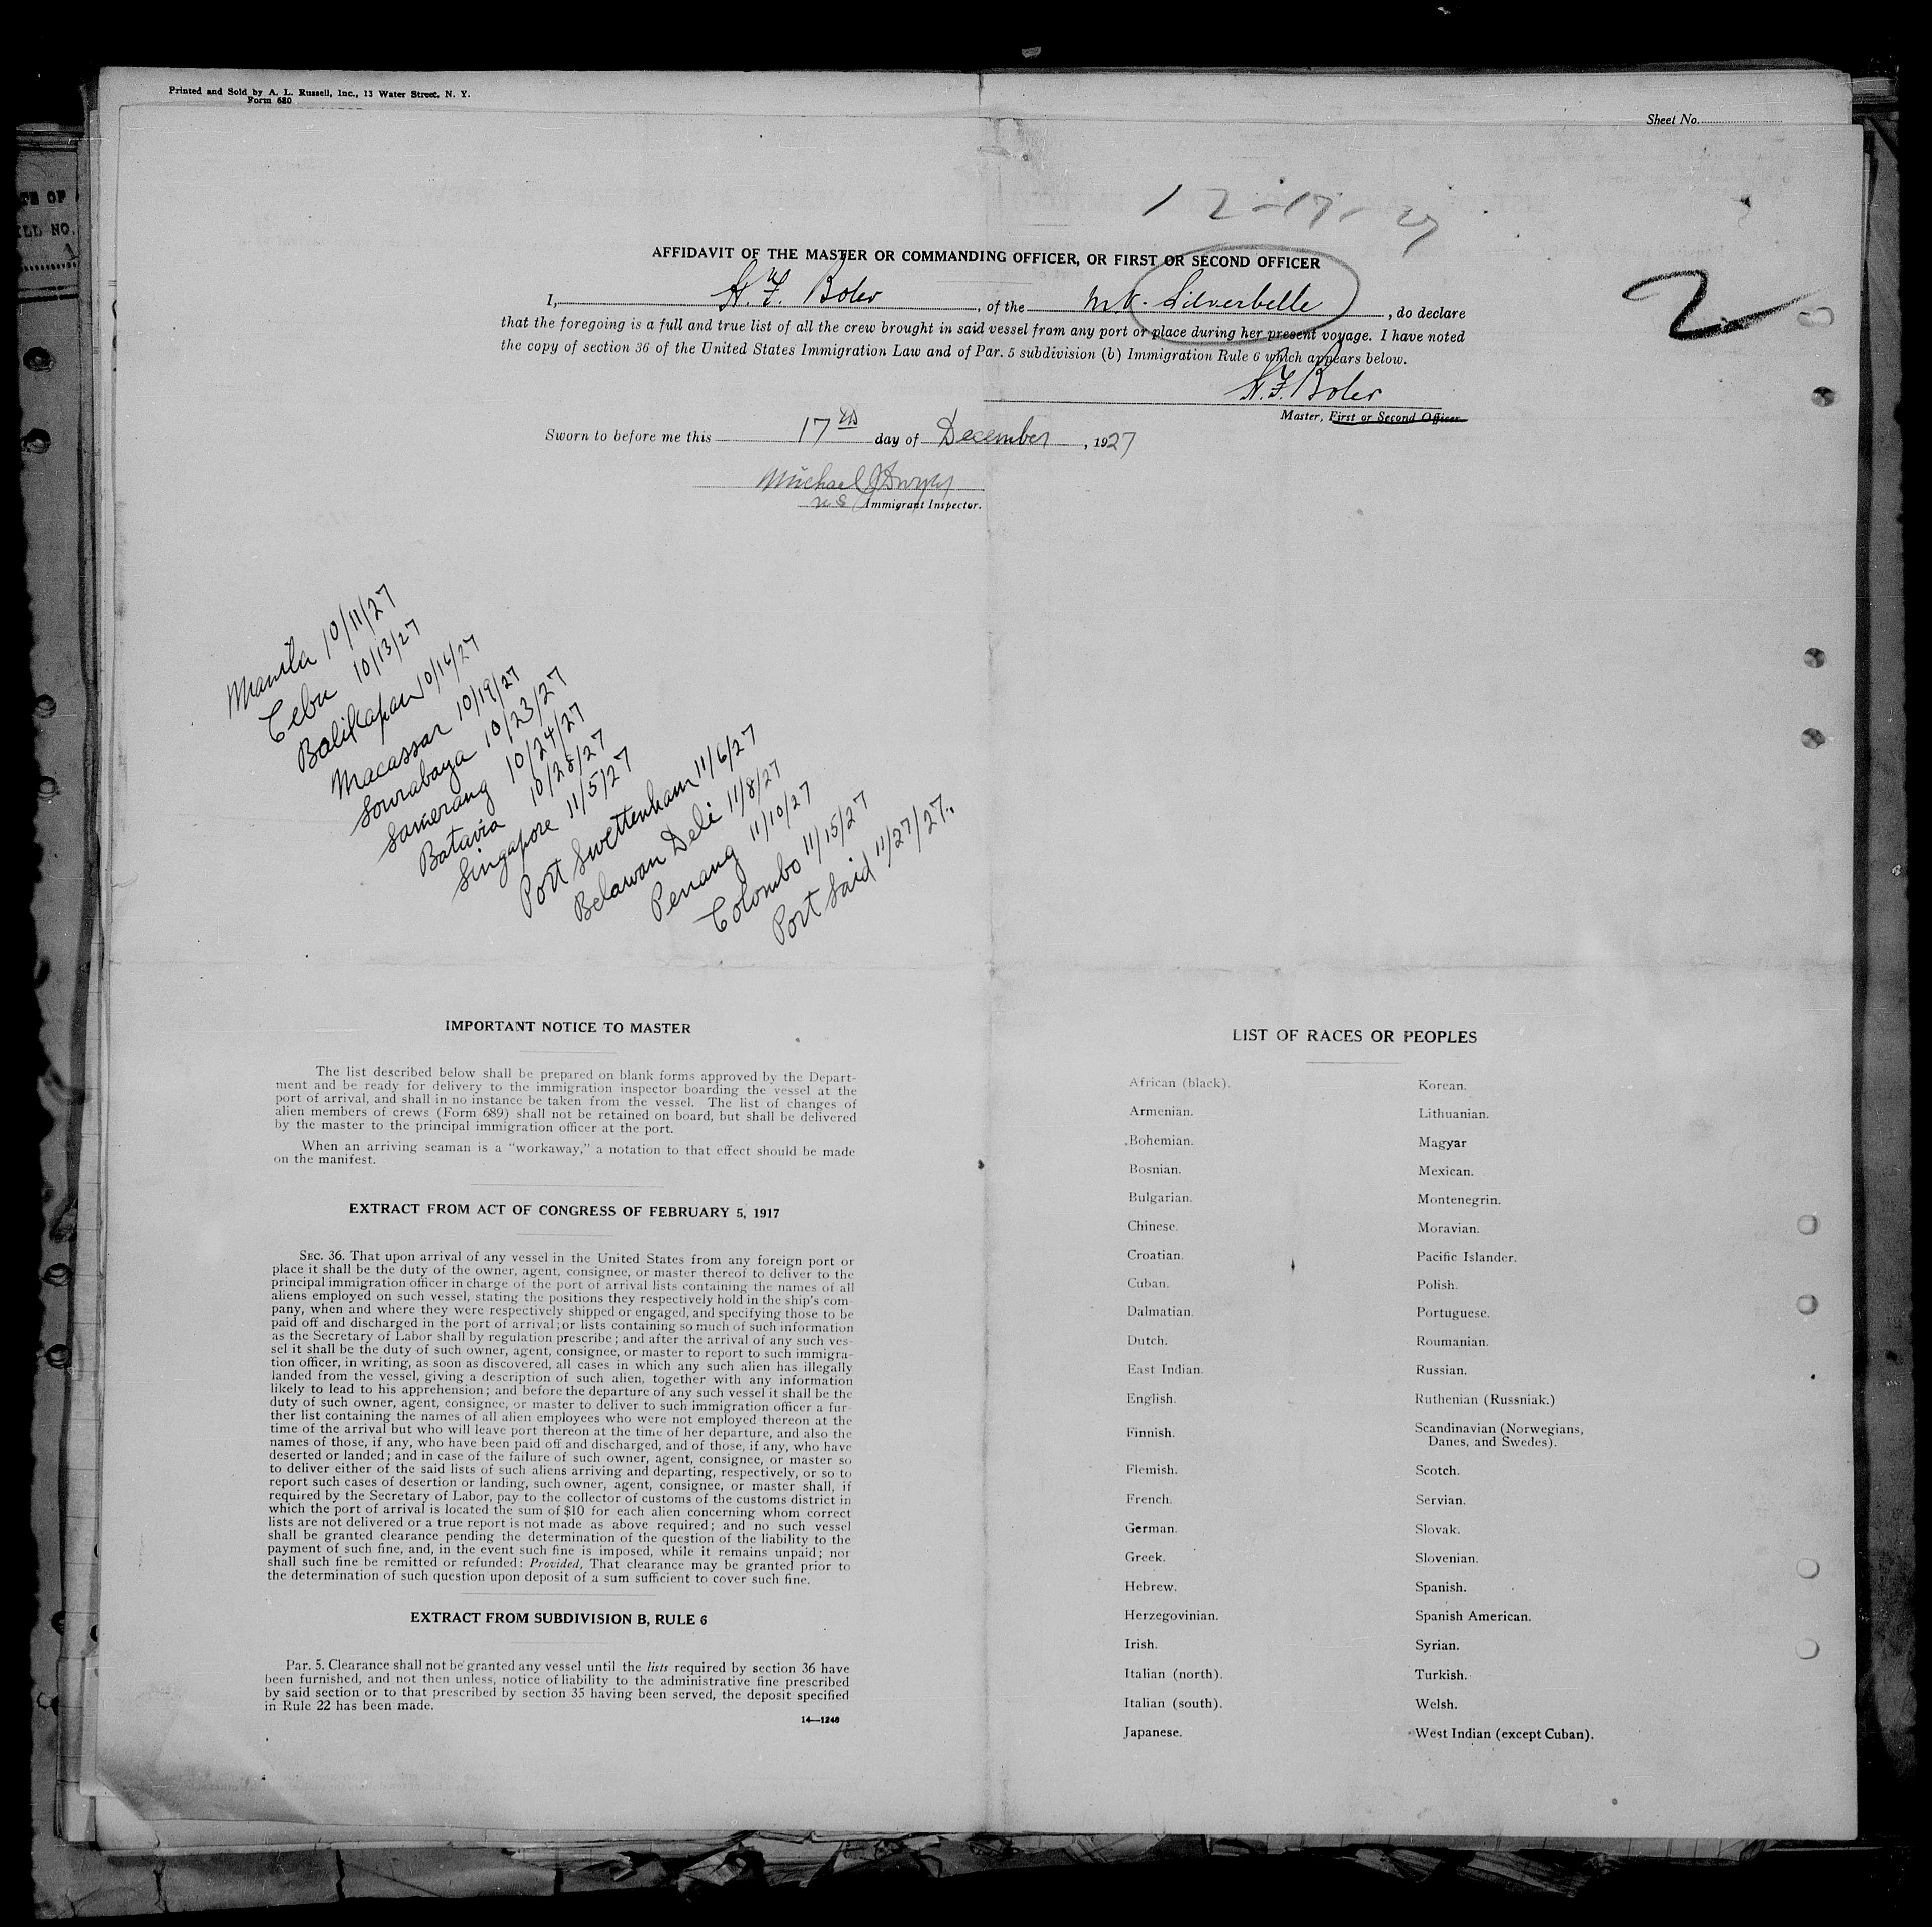 Printed and Sold by A. L. Russell, Inc., 13 Water Street, N. Y.
Form 680
Sheet No.
12-17-27
2
AFFIDAVIT OF THE MASTER OR COMMANDING OFFICER, OR FIRST OR SECOND OFFICER
I, H. F. Boler, of the M.V. Silverbelle, do declare
that the foregoing is a full and true list of all the crew brought in said vessel from any port or place during her present voyage. I have noted
the copy of section 36 of the United States Immigration Law and of Par. 5 subdivision (b) Immigration Rule 6 which appears below.
H. F. Boler
Master, First or Second Officer.
Sworn to before me this 17th day of December, 1927
Michael J Dwyer
U S Immigrant Inspector.
TE OF
LL NO.
Manila 10/11/27
Cebu 10/13/27
Balikapan 10/14/27
Macassar 10/19/27
Sourabaya 10/23/27
Samerang 10/24/27
Batavia 10/28/27
Singapore 11/5/27
Port Swettenham 11/6/27
Belawan Deli 11/8/27
Penang 11/10/27
Colombo 11/15/27
Port Said 11/27/27.
IMPORTANT NOTICE TO MASTER
The list described below shall be prepared on blank forms approved by the Depart-
ment and be ready for delivery to the immigration inspector boarding the vessel at the
port of arrival, and shall in no instance be taken from the vessel. The list of changes of
alien members of crews (Form 689) shall not be retained on board, but shall be delivered
by the master to the principal immigration officer at the port.
When an arriving seaman is a “workaway,” a notation to that effect should be made
on the manifest.
EXTRACT FROM ACT OF CONGRESS OF FEBRUARY 5, 1917
SEC. 36. That upon arrival of any vessel in the United States from any foreign port or
place it shall be the duty of the owner, agent, consignee, or master thereof to deliver to the
principal immigration officer in charge of the port of arrival lists containing the names of all
aliens employed on such vessel, stating the positions they respectively hold in the ship's com-
pany, when and where they were respectively shipped or engaged, and specifying those to be
paid off and discharged in the port of arrival; or lists containing so much of such information
as the Secretary of Labor shall by regulation prescribe; and after the arrival of any such ves-
sel it shall be the duty of such owner, agent, consignee, or master to report to such immigra-
tion officer, in writing, as soon as discovered, all cases in which any such alien has illegally
landed from the vessel, giving a description of such alien, together with any information
likely to lead to his apprehension; and before the departure of any such vessel it shall be the
duty of such owner, agent, consignee, or master to deliver to such immigration officer a fur-
ther list containing the names of all alien employees who were not employed thereon at the
time of the arrival but who will leave port thereon at the time of her departure, and also the
names of those, if any, who have been paid off and discharged, and of those, if any, who have
deserted or landed; and in case of the failure of such owner, agent, consignee, or master so
to deliver either of the said lists of such aliens arriving and departing, respectively, or so to
report such cases of desertion or landing, such owner, agent, consignee, or master shall, if
required by the Secretary of Labor, pay to the collector of customs of the customs district in
which the port of arrival is located the sum of $10 for each alien concerning whom correct
lists are not delivered or a true report is not made as above required; and no such vessel
shall be granted clearance pending the determination of the question of the liability to the
payment of such fine, and, in the event such fine is imposed, while it remains unpaid; nor
shall such fine be remitted or refunded: Provided, That clearance may be granted prior to
the determination of such question upon deposit of a sum sufficient to cover such fine.
EXTRACT FROM SUBDIVISION B, RULE 6
Par. 5. Clearance shall not be granted any vessel until the lists required by section 36 have
been furnished, and not then unless, notice of liability to the administrative fine prescribed
by said section or to that prescribed by section 35 having been served, the deposit specified
in Rule 22 has been made.
14—1240
LIST OF RACES OR PEOPLES
African (black).
Armenian.
Bohemian.
Bosnian.
Bulgarian.
Chinese.
Croatian.
Cuban.
Dalmatian.
Dutch.
East Indian.
English.
Finnish.
Flemish.
French.
German.
Greek.
Hebrew.
Herzegovinian.
Irish.
Italian (north).
Italian (south).
Japanese.
Korean.
Lithuanian.
Magyar
Mexican.
Montenegrin.
Moravian.
Pacific Islander.
Polish.
Portuguese.
Roumanian.
Russian.
Ruthenian (Russniak.)
Scandinavian (Norwegians,
Danes, and Swedes).
Scotch.
Servian.
Slovak.
Slovenian.
Spanish.
Spanish American.
Syrian.
Turkish.
Welsh.
West Indian (except Cuban).